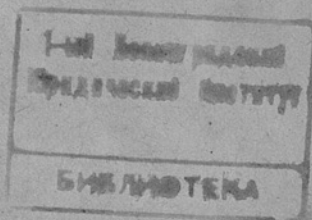 1-ый Ленинградский
Юридический Институт
БИБЛИОТЕКА